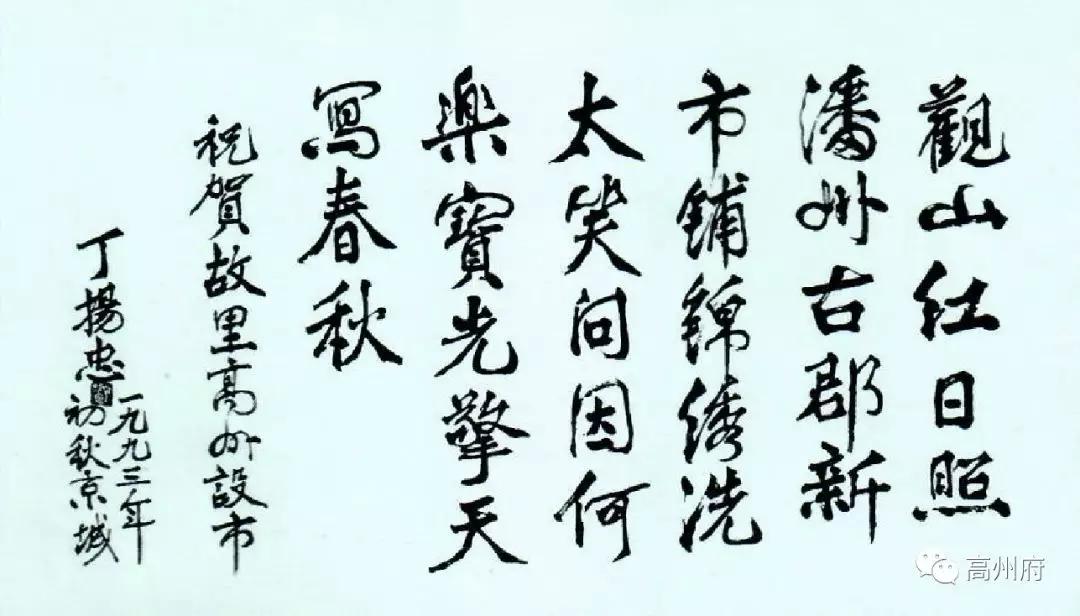 觀山红日照
潘州古郡新
市鋪錦綉洗
太笑问因何
楽寶光擎天
寫春秋
祝賀故里高州設市
丁揚忠
一九九三年
初秋京城
高州府